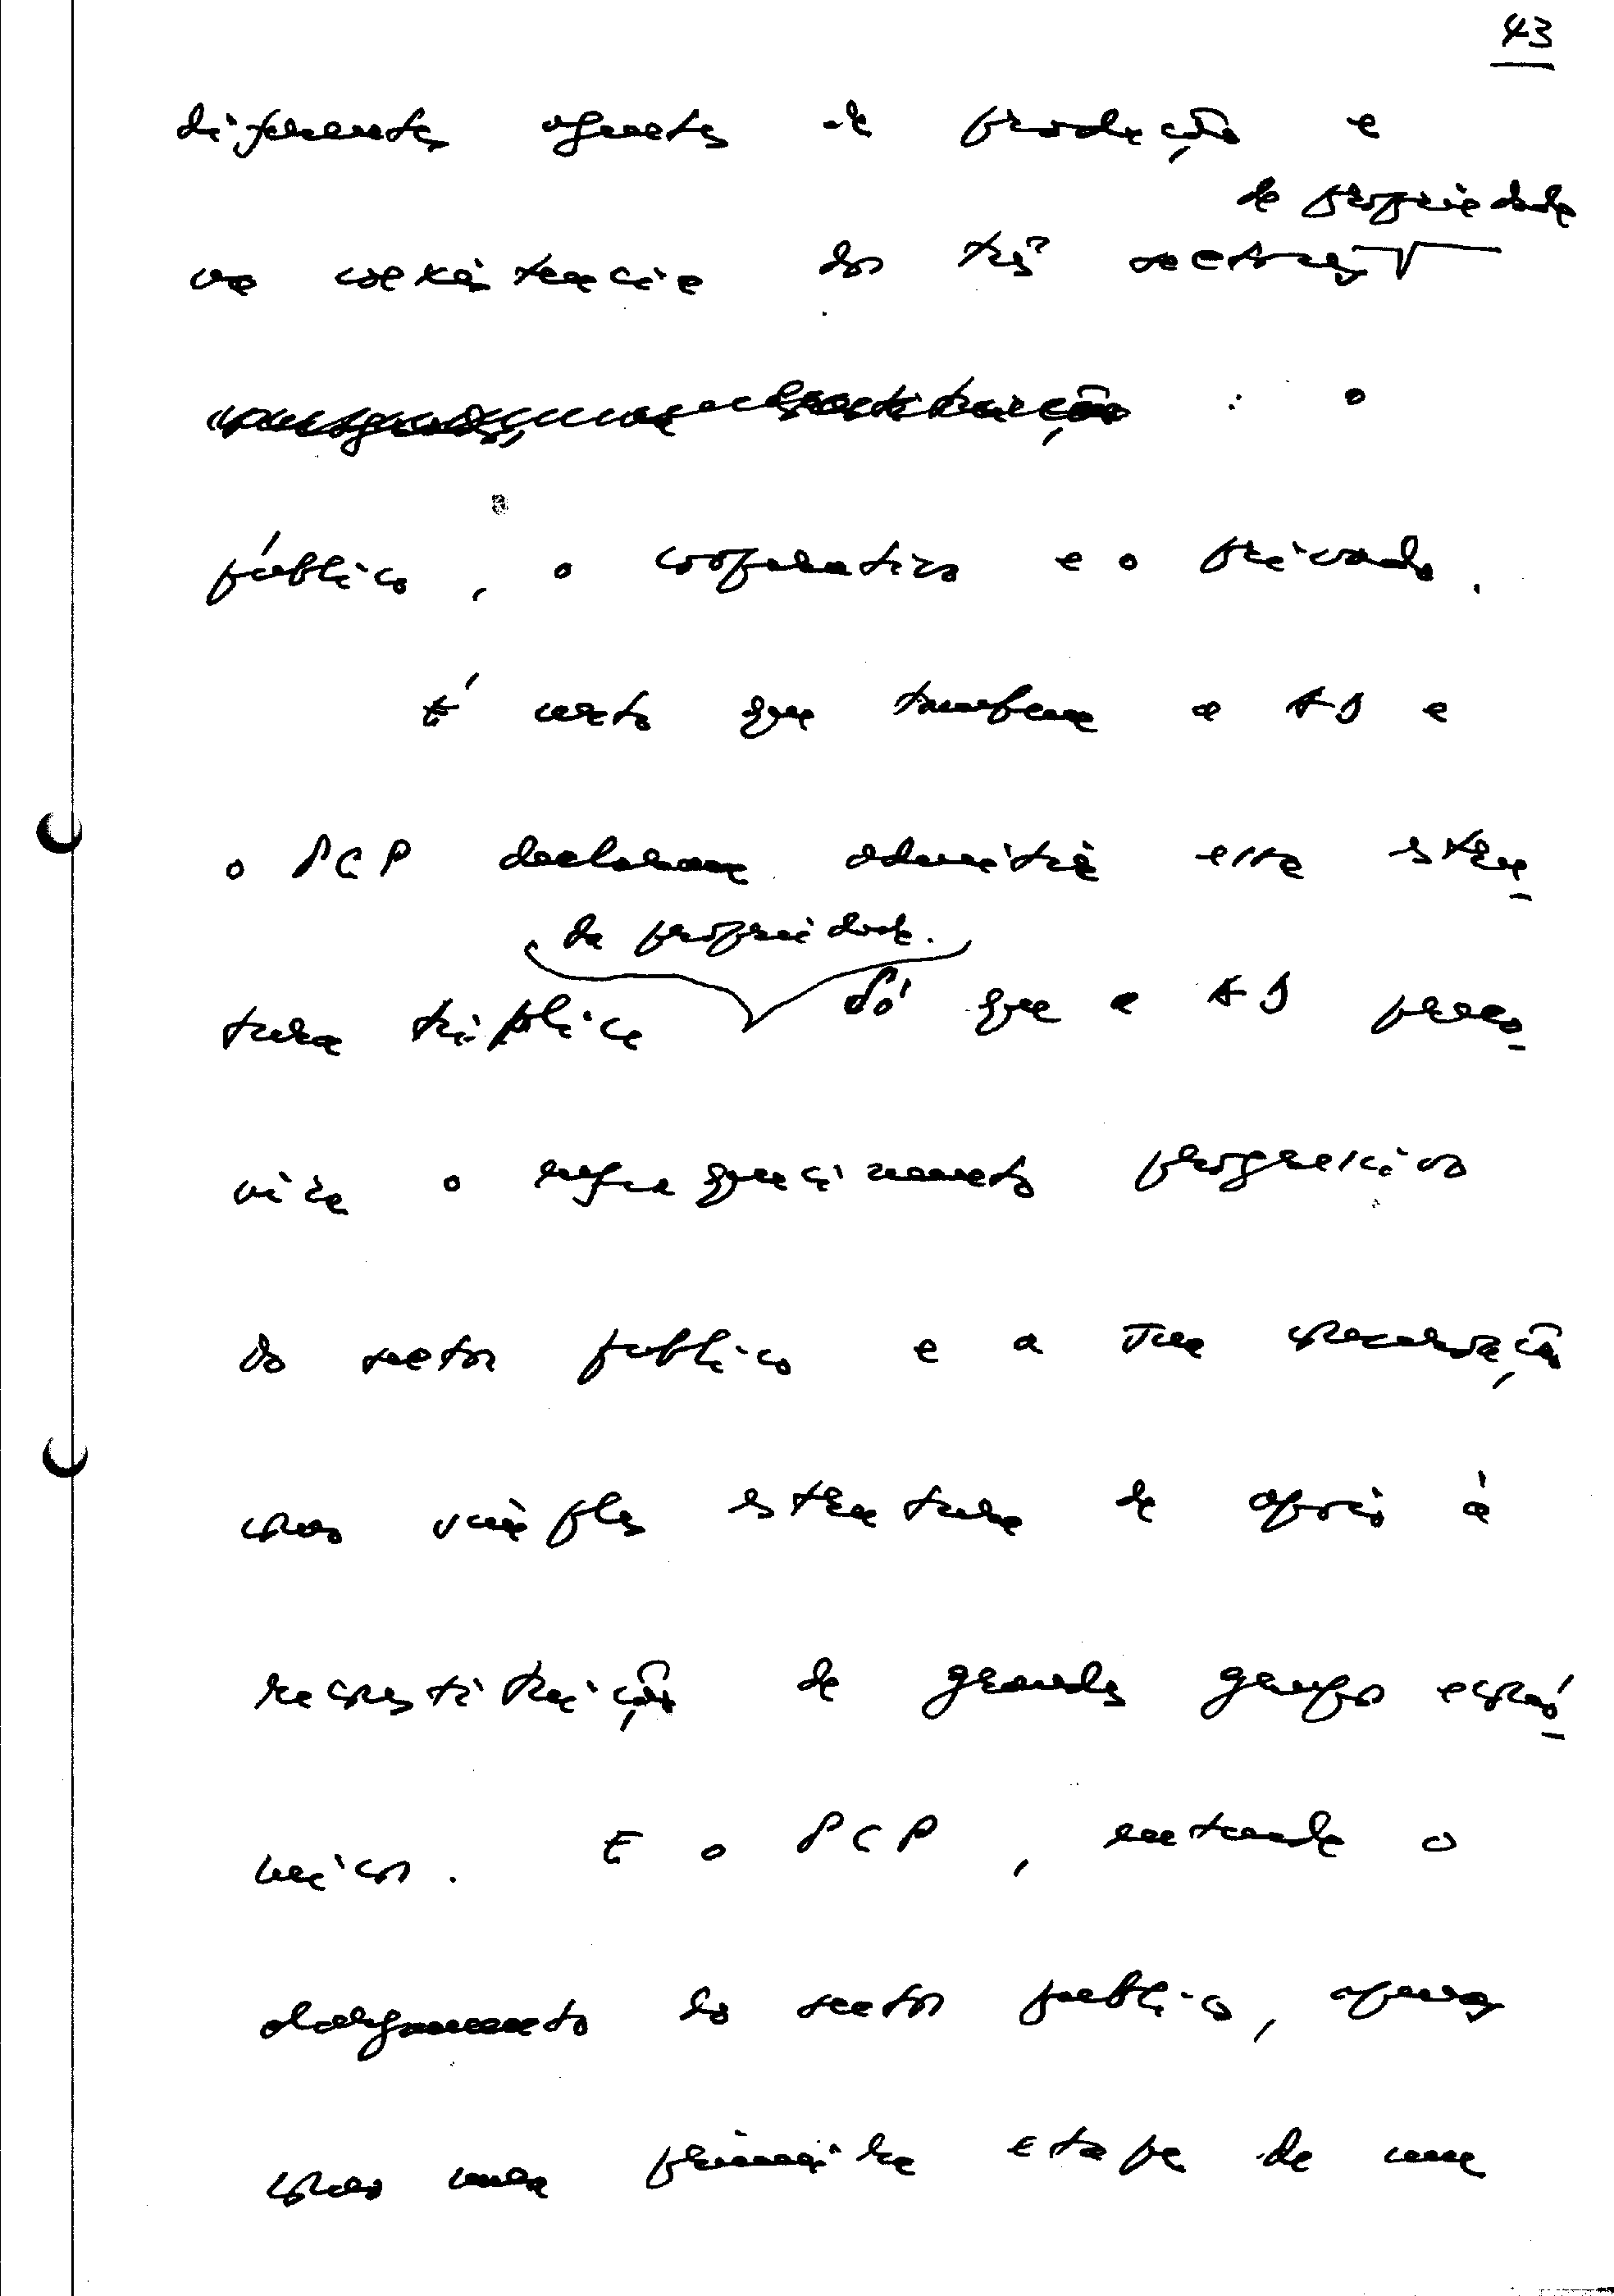 43
diferentes agentes de produção e
de propriedade
na coexistência dos três sectores
consignados, na Constituição : o
público, o cooperativo e o privado.
É certo que também a AD e
o PCP declaram admitir essa estru
de propriedade.
tura tríplice Só que a AD preco
niza o enfraquecimento progressivo
do sector publico e a sua
como simples estrutura de apoio à
reconstituição de grandes grupos econó
micos. E o PCP, entende o
alargamento do sector publico, apenas
como uma primeira etapa de uma